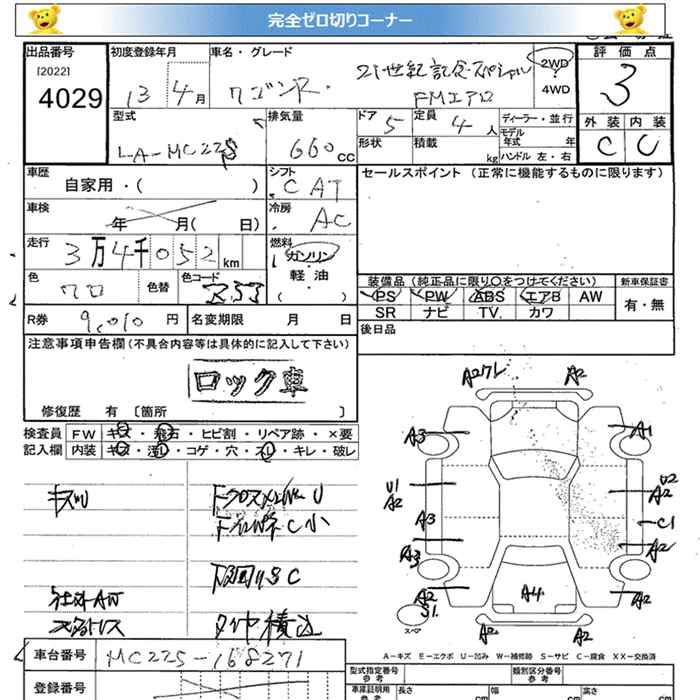 完全ゼロ切りコーナー
出品番号 初度登録年月 車名・グレード 評価点
[2022] 4029
13 4月 ワゴンR 21世紀記念スペシャル FMエアロ
2WD・4WD
3
型式 排気量 ドア 定員 ディーラー・並行 外装 内装
LA-MC22S 660CC 5 4人 モデル年式 年 C C
形状 積載 kg ハンドル 左・右
車歴 シフト セールスポイント (正常に機能するものに限ります)
自家用・( ) CAT
車検 冷房
年 月( 日) AC
走行 燃料
3万4千052km ガソリン・軽・油・( )
色 色替 色コード 装備品 (純正品に限り○をつけてください) 新車保証書
クロ Z53 PS PW ABS エアB AW 有・無
SR ナビ TV. カワ
R券 9,010円 名変期限 月 日 後日品
注意事項申告欄(不具合内容等は具体的に記入して下さい)
ロック車
修復歴 有 〔箇所 〕
検査員 FW キズ・飛石・ヒビ割・リペア跡・×要
記入欄 内装 キズ・汚レ・コゲ・穴・スレ・キレ・破レ
A2
A3 A1
キズ U
U1 A2 U2 A2
A3 C1
A3 A2
下回りSC
社外AW A2 A4 A2
S1
タイヤ積込
スペア A2 A2
A-キズ E-エクボ U-凹み W-補修跡 S-サビ C-腐食 XX-交換済
車台番号 MC22S-168271
登録番号 型式指定番号 参考 類別区分番号 参考
車庫証明用 参考 長さ cm 幅 cm 高さ cm